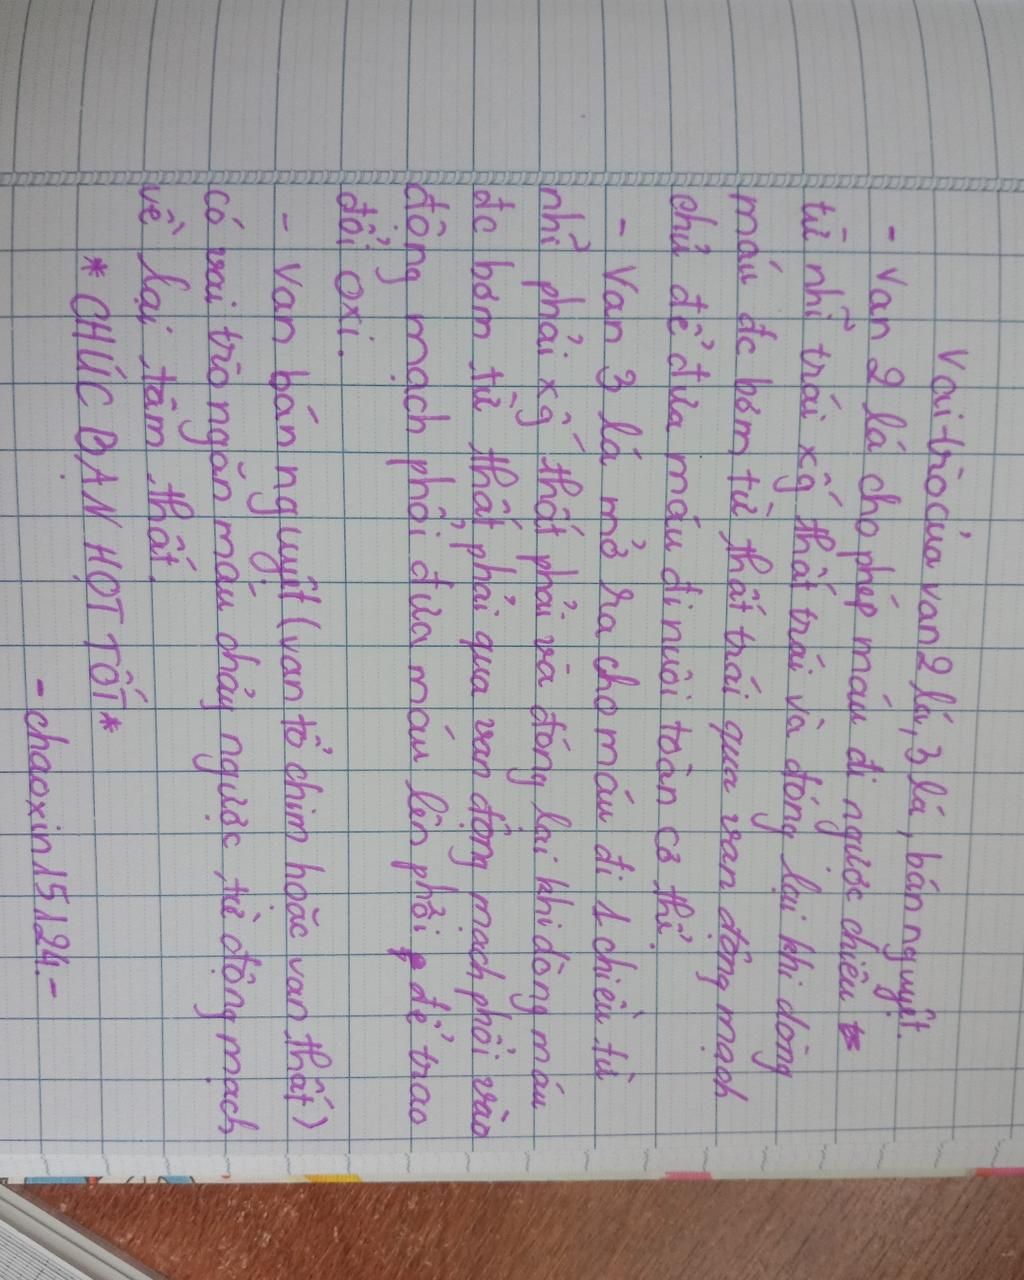 Vai trò của van 2 lá, 3 lá, bán nguyệt.
- Van 2 lá cho phép máu đi ngược chiều
từ nhĩ trái xg thất trái và đóng lại khi dòng
máu đc bơm từ thất trái qua van động mạch
chủ để đưa máu đi nuôi toàn cơ thể
- Van 3 lá mở ra cho máu đi 1 chiều từ
nhĩ phải xg thất phải và đóng lại khi dòng máu
đc bơm từ thất phải qua van động mạch phổi vào
động mạch phổi đưa máu lên phổi để trao
đổi oxi.
- Van bán nguyệt (van tổ chim hoặc van thất)
có vai trò ngăn máu chảy ngược từ động mạch
về lại tâm thất.
* CHÚC BẠN HỌT TỐT *
- chaoxin15124.-